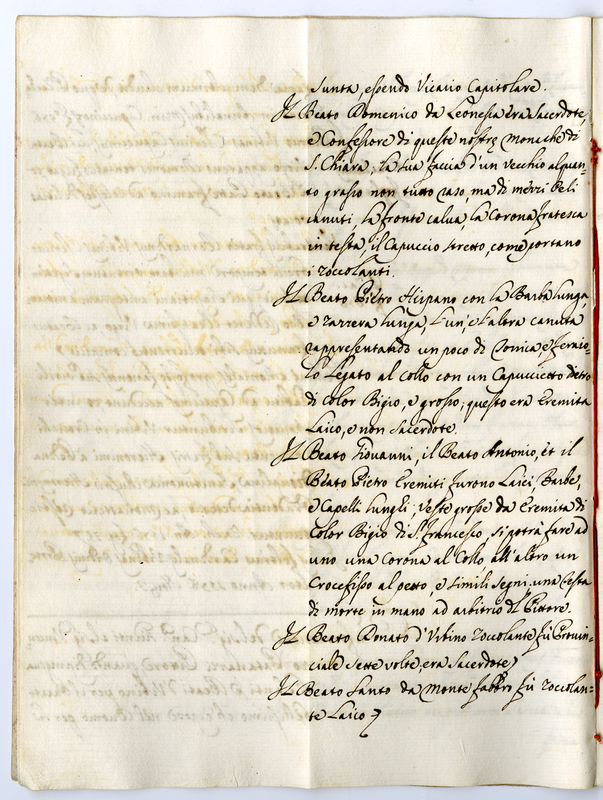 sunta, essendo Vicario Capitolare.
Il Beato Domenico da Leonessa era Sacerdote,
e Confessore di queste nostre Monache di
S. Chiara; la sua facia d'un vecchio alquan=
to grasso non tutto raso, ma di mezzi peli
canuti, la fronte calva, la Corona fratesca
in testa, il Capuccio stretto, come portano
i Zoccolanti.
Il Beato Pietro Hispano con la Barba lunga,
e zazzera lunga, l'un', e l'altra canuta
rappresentando un poco di Tonica, e feraio=
lo legato al Collo con un Capuccietto dietro
di Color Bigio, e grosso; questo era Eremita
Laico, e non Sacerdote.
Il Beato Giovanni, il Beato Antonio, et il
Beato Pietro Eremiti furono Laici, Barbe,
e Capelli lunghi; Veste grosse da Eremita di
Color Bigio di S. Francesco, si potrà fare ad
uno una Corona al Collo all'altro un
Crocefisso al petto, e simili segni, una Testa
di morte in mano ad arbitrio del Pittore.
Il Beato Donato d'Urbino Zoccolante fù Provin=
ciale sette volte, era Sacerdote,
Il Beato Santo da Monte fabbro fù Zoccolan=
te Laico